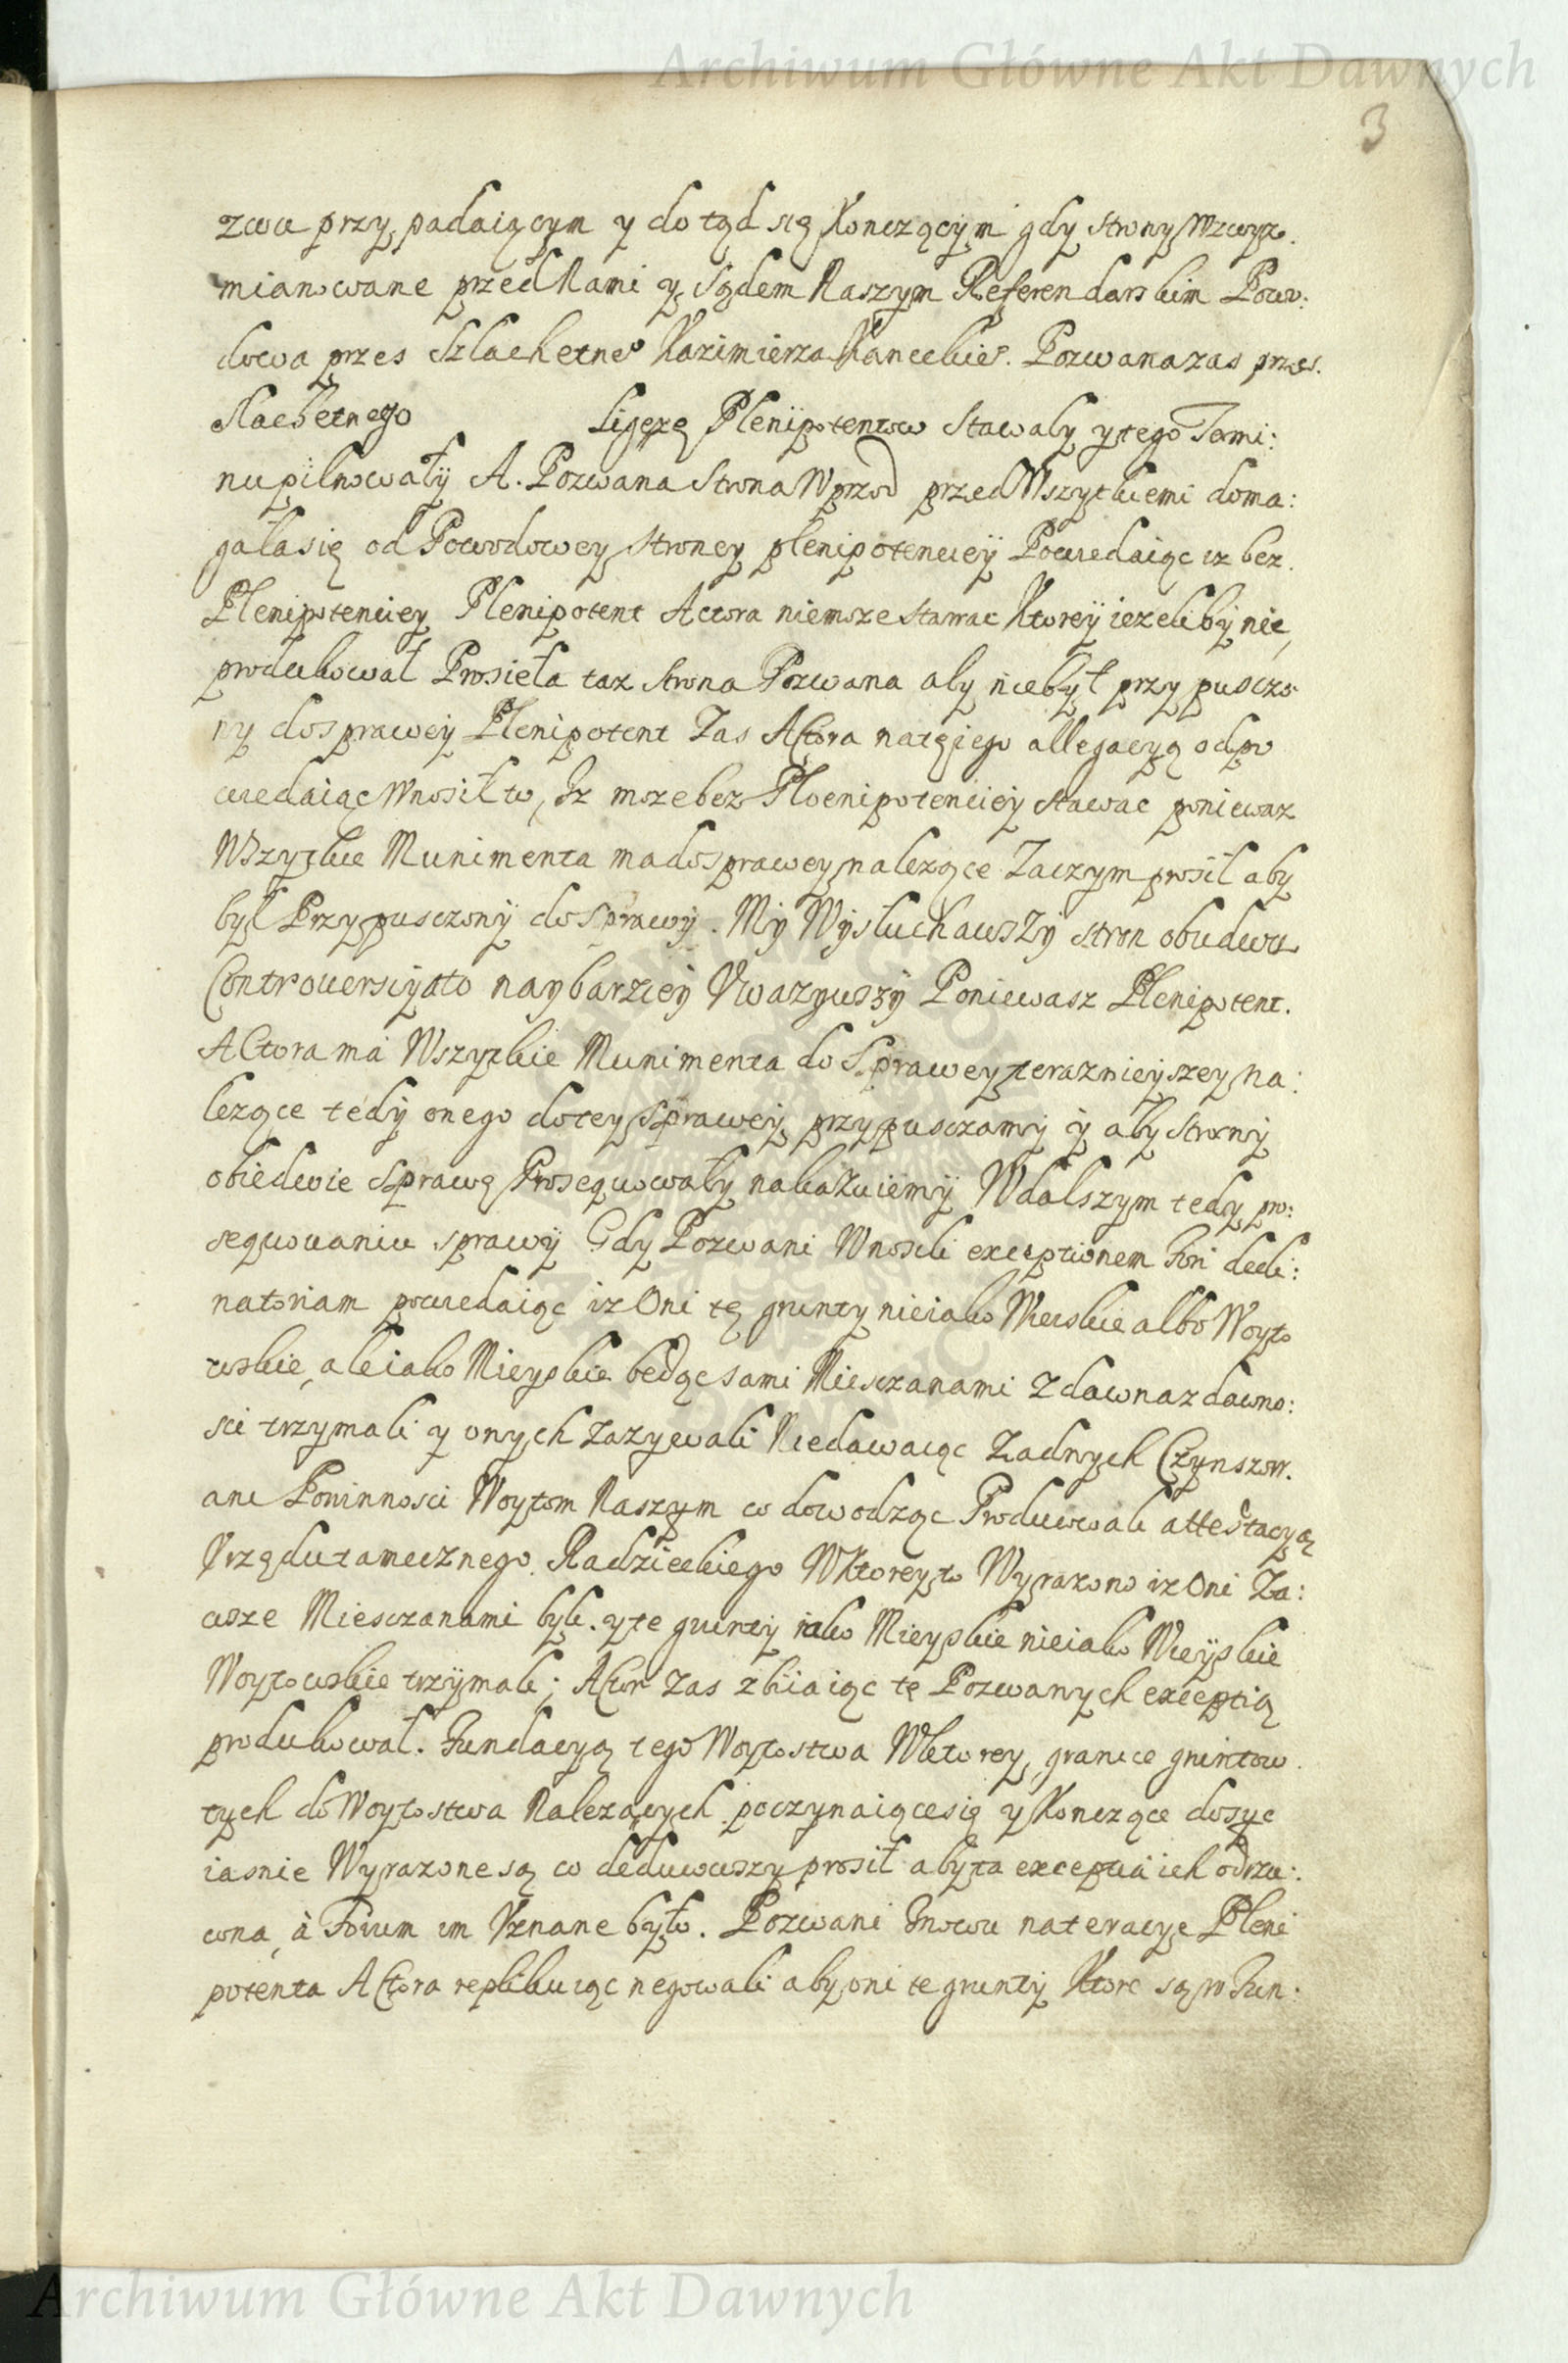 Archiwum Główne Akt Dawnych
3
zwu przypadaiącym y do tąd się Konczącÿm gdy strony Wzwyż
mianowane przed Nami y Sądem Naszym Referendarskim Powo:
dowa przes Szlachetneº Kazimierza Kaneckieº. Pozwana zas przes.
Slachetnego Ligęzę Plenipotentow Stawały y tego Termi:
nu pilnowałÿ A. Pozwana Strona Wprzod przed Wszytkiemi doma:
gała się od Powodowey Stroney plenipotencieÿ Powiedaiąc iz bez.
Plenipotenciey Plenipotent Actora niemoze stawac Ktoreÿ iezelibÿ nie,
produkował Prosieła taz Strona Pozwana aby niebył przypusczo
ny do sprawey Plenipotent Zas Actora natęiego allegacyą odpo
wiedaiąc Wnosił to, Iz moze bez Ploenipotencieÿ stawac poniewaz
Wszyzkie Munimenta ma do sprawey nalezące Zaczym prosił aby
był Przypusczonÿ do sprawÿ. Mÿ Wÿsłuchawszÿ stron obudwu
Controversiÿ a to naybarzieÿ Vwazywszÿ Poniewasz Plenipotent.
Actora ma Wszyzkie Munimenta do Sprawey terazniejszey na:
lezące tedÿ onego do tey Sprawey przypusczamÿ ÿ aby stronÿ
obiedwie Sprawę Prosequowałÿ nakazuiemÿ Wdalszym tedy pro:
sequowaniu sprawÿ Gdy Pozwani Wnosili exceptionem Fori decli:
natoriam powiedaiąc iz Oni tę grunty nieiako Wieiskie albo Woyto
wskie, ale iako Mieyskie będąc sami Miesczanami Zdawna zdawno:
sci trzymali y onych Zazywali Niedawaiąc Zadnych Czynszow.
ani Powinnosci Woytom Naszym co dowodząc Produkowali attestacyą
Vrzędu zamecznego Radzieckiego Wktorey to Wyrazono iz Oni Za:
wsze Miesczanami byli. y te gruntÿ iako Mieyskie nieiako Wieÿskie
Woytowskie trzÿmali; Actor Zas zbiiaiąc tę Pozwanych exceptią
produkował. Fundacyą tego Woytostwa Wktorey, granice gruntow.
tych do Woytostwa Nalezących poczynaiące się y Konczące dosyc
iasnie Wyrazone są co dedukowszy prosił aby ta exceptia ich odrzu:
cona, à Forum im Vznane było. Pozwani Znowu na te racye Pleni
potenta Actora replikuiąc negowali aby oni te gruntÿ Ktore są w Fun:
Archiwum Główne Akt Dawnych